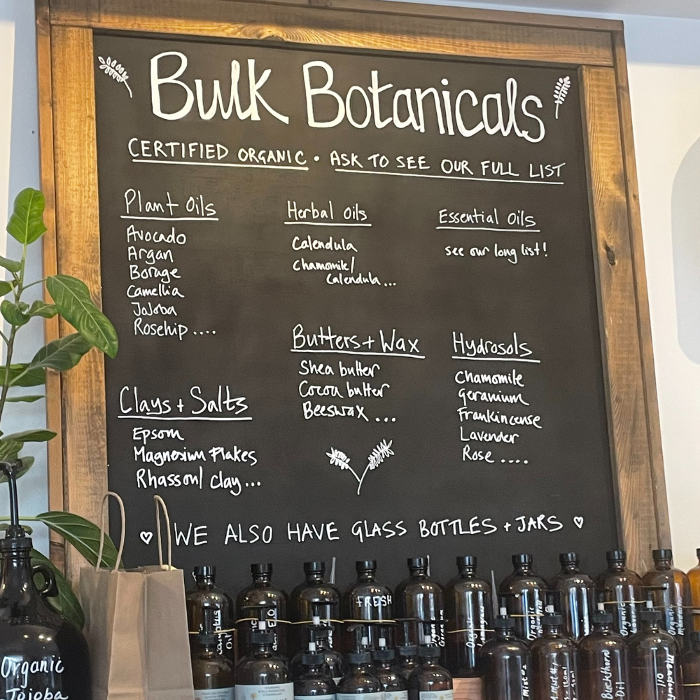 Bulk Botanicals
CERTIFIED ORGANIC • ASK TO SEE OUR FULL LIST
Plant Oils
Avocado
Argan
Borage
Camellia
Jojoba
Rosehip ....
Herbal Oils
Calendula
Chamomile/
Calendula...
Essential Oils
see our long list!
Butters + Wax
Shea butter
Cocoa butter
Beeswax ...
Hydrosols
Chamomile
Geranium
Frankincense
Lavender
Rose ....
Clays + Salts
Epsom
Magnesium Flakes
Rhassoul clay...
♡ WE ALSO HAVE GLASS BOTTLES + JARS ♡
FRESH
Organic
Jojoba
Buckthorn
Oil